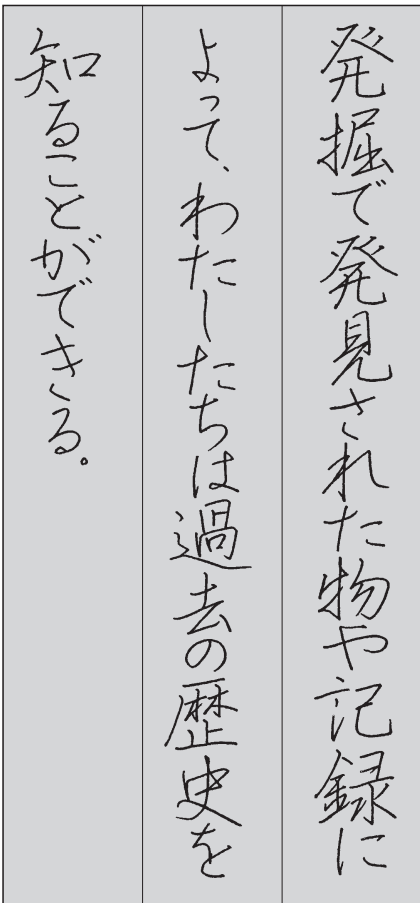 発掘で発見された物や記録に
よって、わたしたちは過去の歴史を
知ることができる。